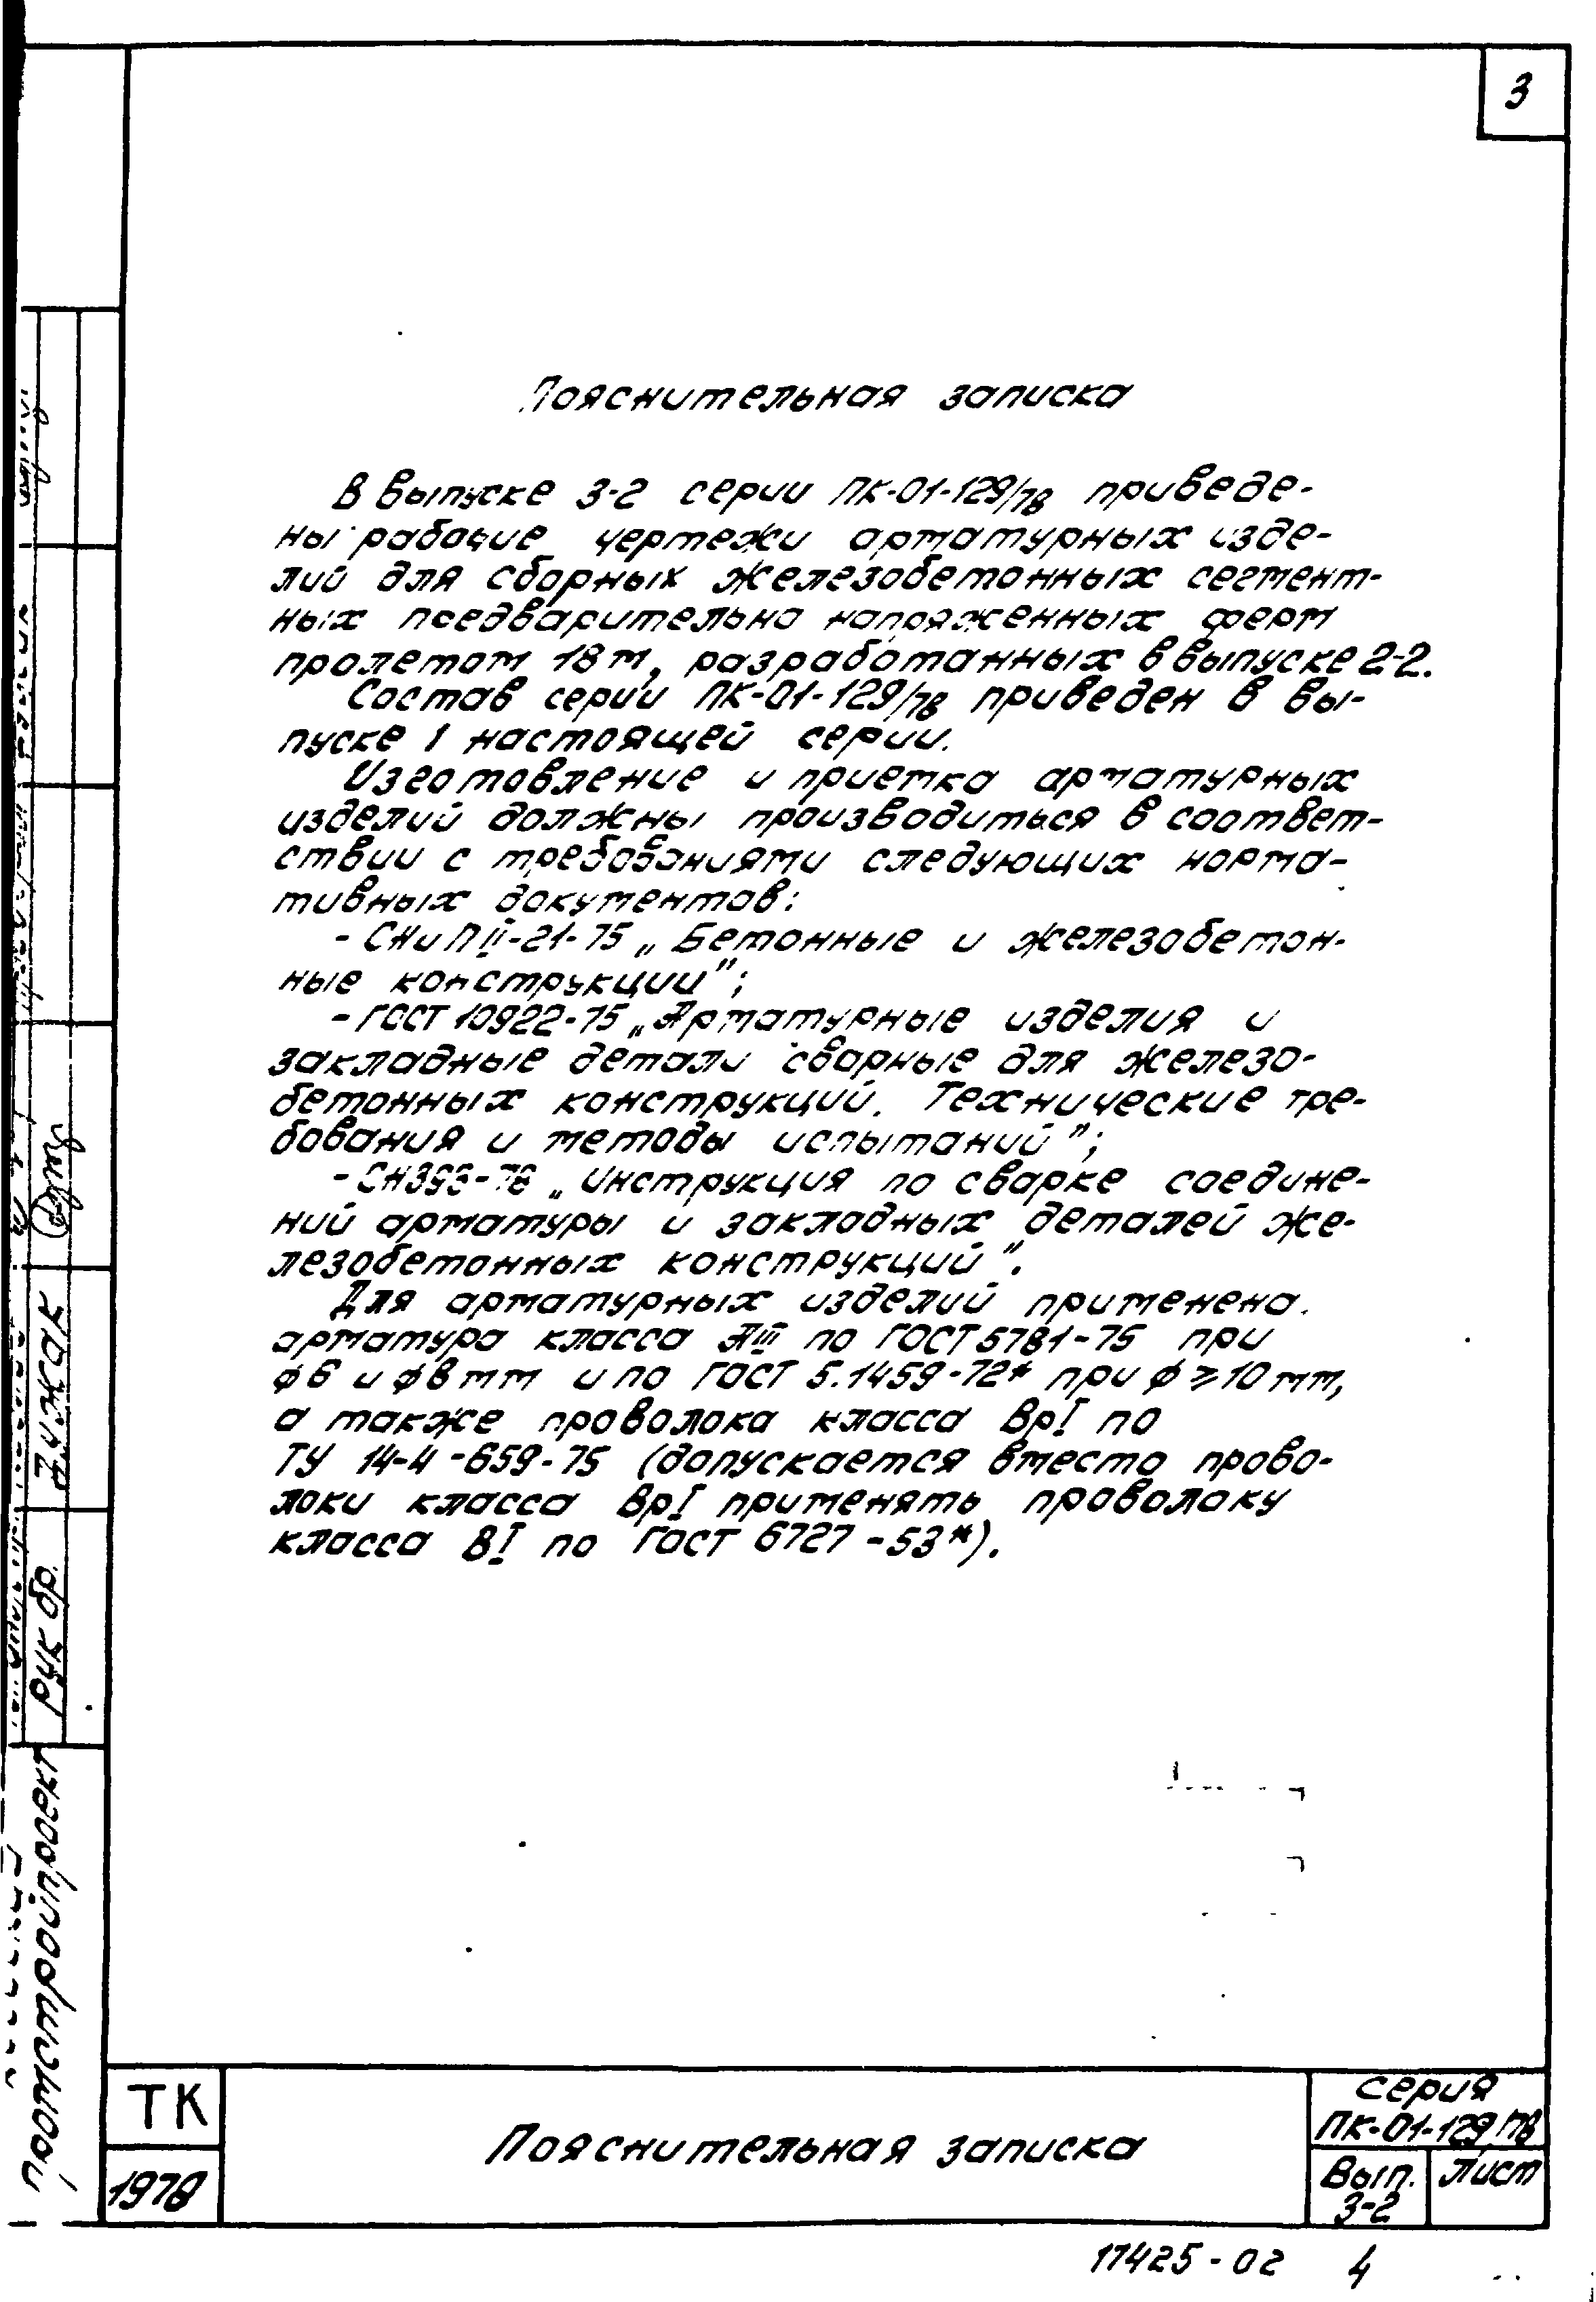 3
Пояснительная записка
В выпуске 3-2 серии ПК-01-129/78 приведе-
ны рабочие чертежи арматурных изде-
лий для сборных железобетонных сегмент-
ных предварительно напряженных ферм
пролетом 18 м, разработанных в выпуске 2-2.
Состав серии ПК-01-129/78 приведен в вы-
пуске 1 настоящей серии.
Изготовление и приемка арматурных
изделий должны производиться в соответ-
ствии с требованиями следующих норма-
тивных документов:
- СНиП II-21-75 „Бетонные и железобетон-
ные конструкции";
- ГОСТ 10922-75 „Арматурные изделия и
закладные детали сварные для железо-
бетонных конструкций. Технические тре-
бования и методы испытаний";
- СН393-78 „Инструкция по сварке соедине-
ний арматуры и закладных деталей же-
лезобетонных конструкций".
Для арматурных изделий применена
арматура класса АIII по ГОСТ 5781-75 при
ф 6 и ф 8 мм и по ГОСТ 5.1459-72* при ф ≥ 10 мм,
а также проволока класса ВрI по
ТУ 14-4-659-75 (допускается вместо прово-
локи класса ВрI применять проволоку
класса ВI по ГОСТ 6727-53*).
Рук бр.
Чужак
Промстройпроект
ТК
1978
Пояснительная записка
серия
ПК-01-129/78
Вып.
3-2
Лист
17425-02 4